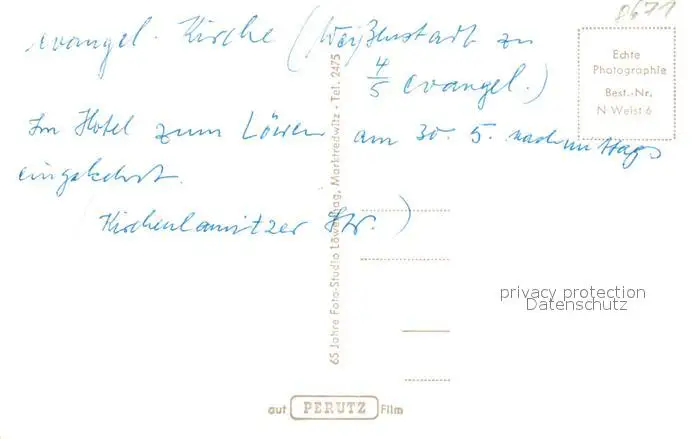 8671
evangel. Kirche (Weißenstadt zu
4/5 evangel.)
Im Hotel zum Löwen am 30. 5. nachmittags
eingekehrt.
(Kirchenlamitzer Str.)
Echte
Photographie
Best.-Nr.
N Weist 6
65 Jahre Foto-Studio Löwenhag, Marktredwitz · Tel. 2475
privacy protection
Datenschutz
auf PERUTZ Film